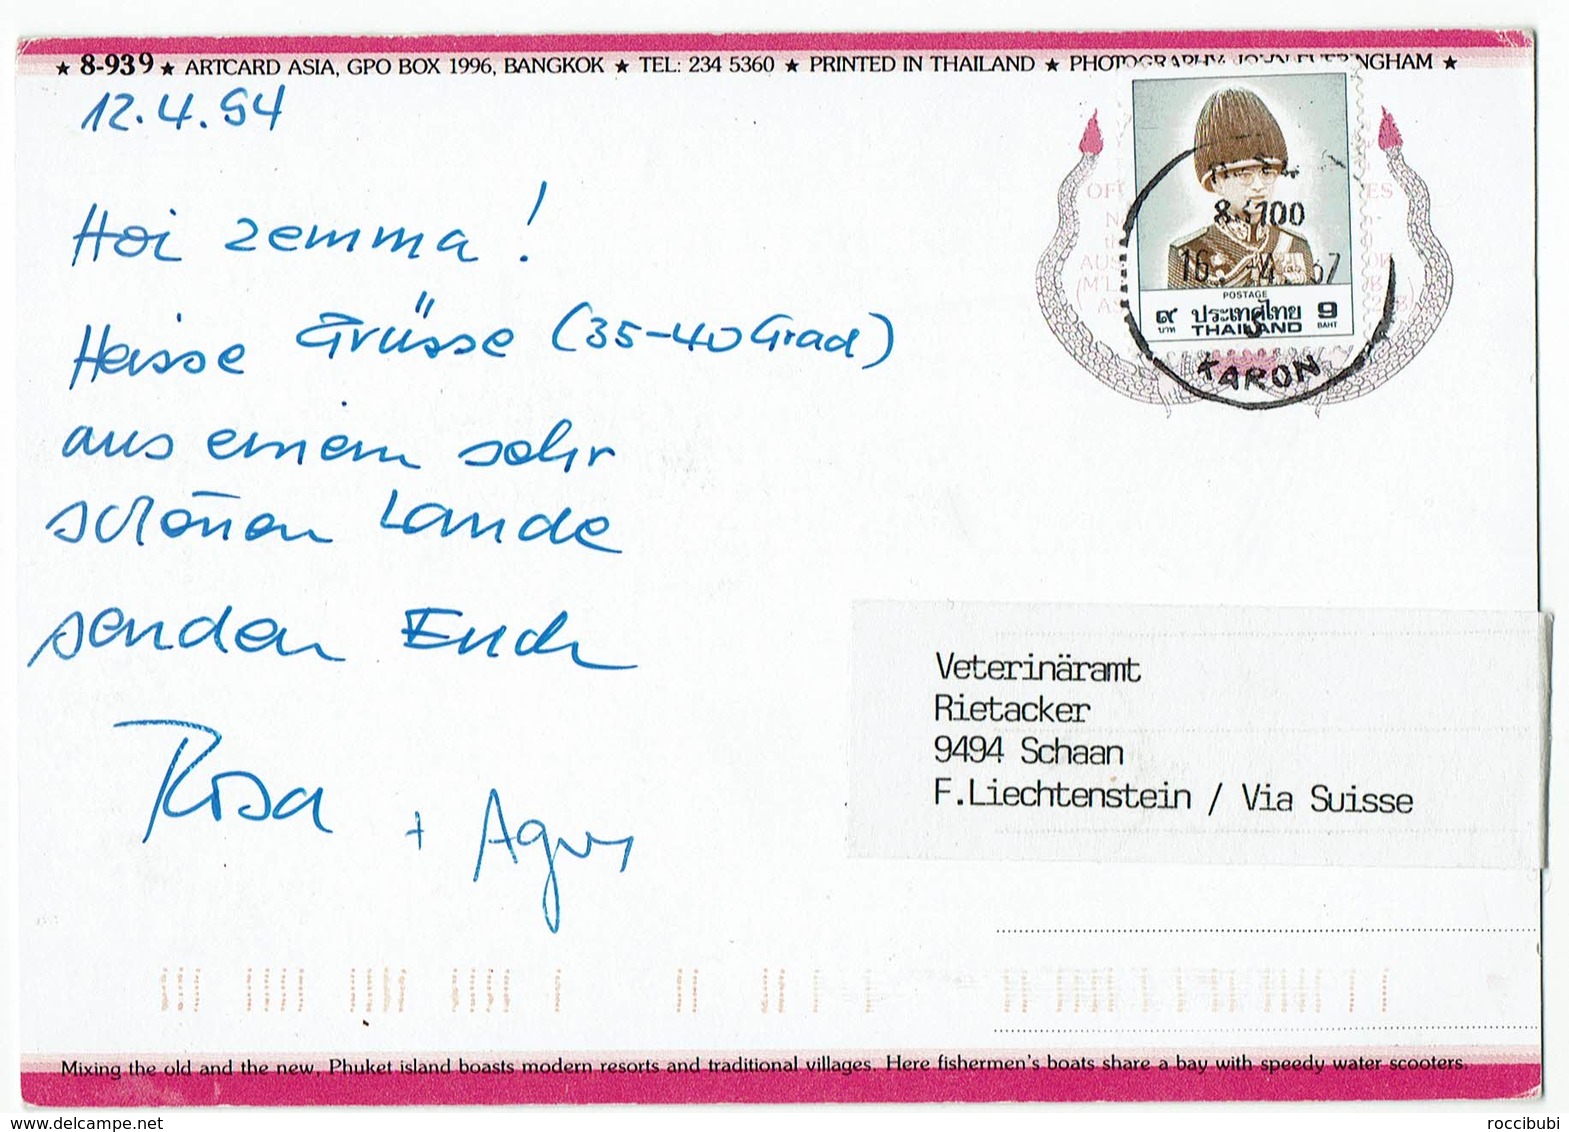 ★ 8-939 ★ ARTCARD ASIA, GPO BOX 1996, BANGKOK ★ TEL: 234 5360 ★ PRINTED IN THAILAND ★ PHOTOGRAPHY: JOHN EVERINGHAM ★
12.4.94
Hoi zemma!
Heisse Grüsse (35-40 Grad)
aus einem sehr
schönen Lande
senden Euch
Rosa + Agnes
83100
16 -4 37
POSTAGE
๙ ประเทศไทย 9
บาท THAILAND BAHT
KARON
Veterinäramt
Rietacker
9494 Schaan
F.Liechtenstein / Via Suisse
Mixing the old and the new, Phuket island boasts modern resorts and traditional villages. Here fishermen's boats share a bay with speedy water scooters.
delcampe.net
roccibubi